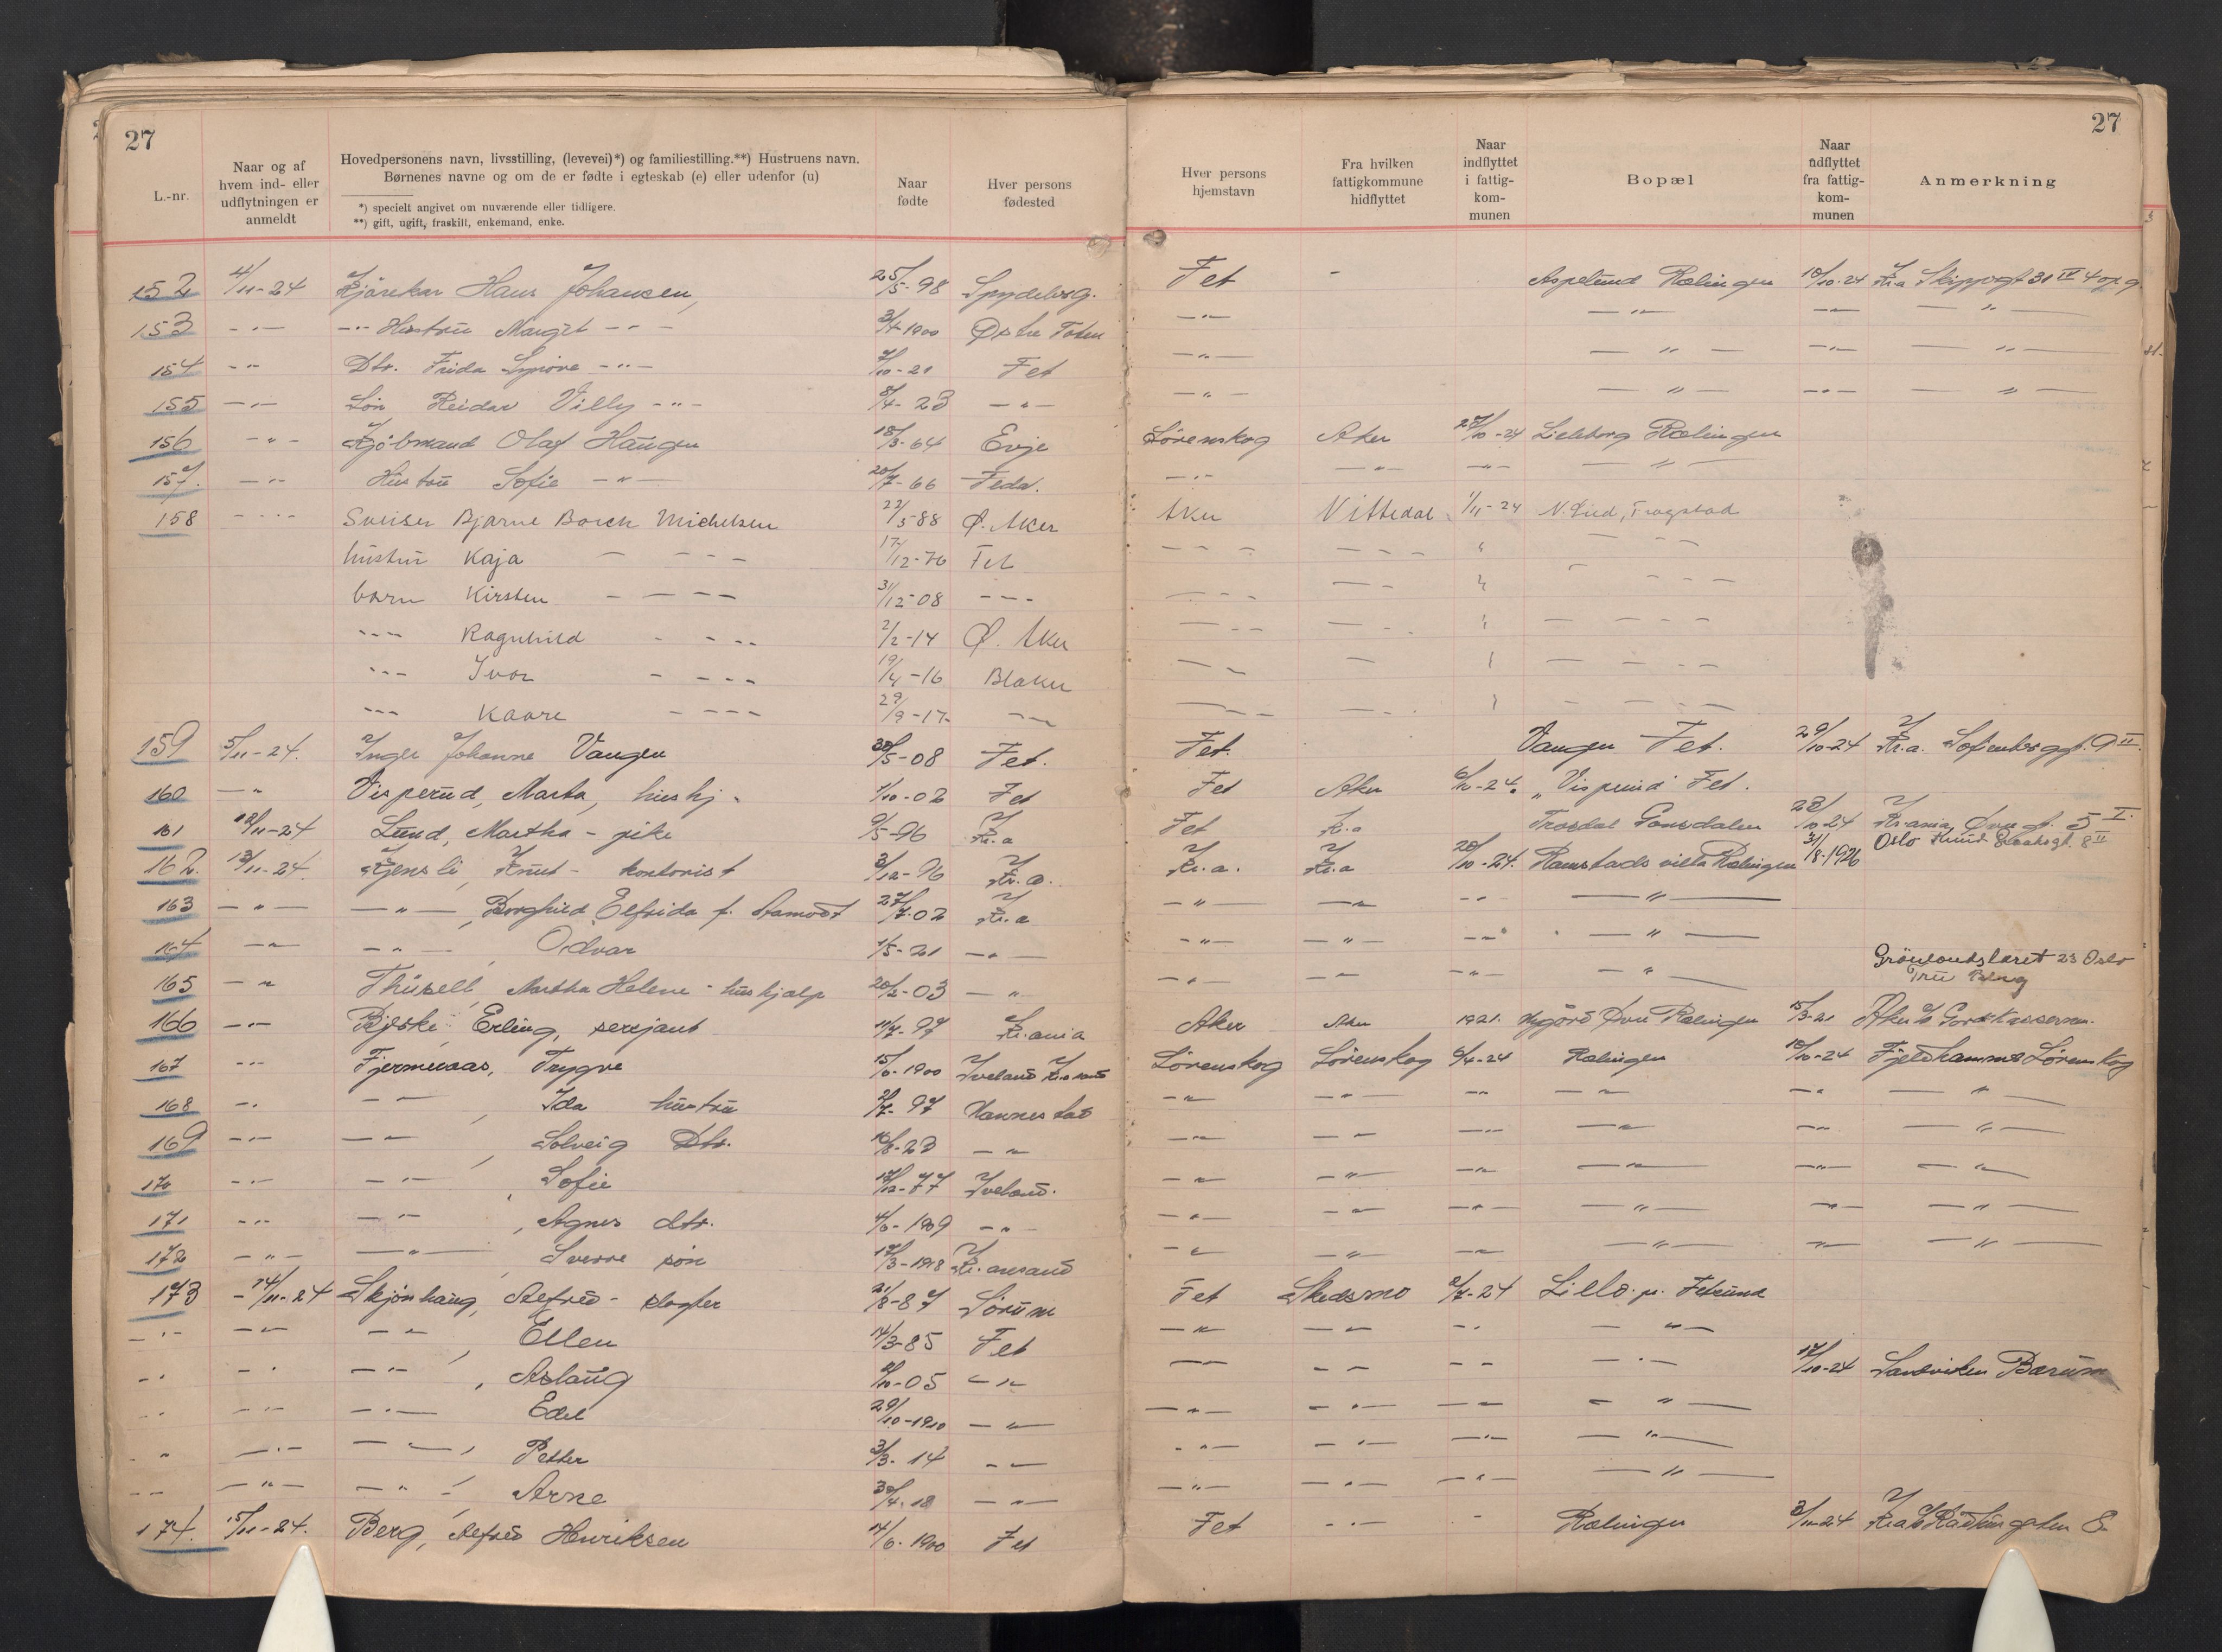 27
27
L.-nr.
Naar og af hvem ind- eller udflytningen er anmeldt
Hovedpersonens navn, livsstilling, (levevei)*) og familiestilling.**) Hustruens navn.
Børnenes navne og om de er fødte i egteskab (e) eller udenfor (u)
*) specielt angivet om nuværende eller tidligere.
**) gift, ugift, fraskilt, enkemand, enke.
Naar fødte
Hver persons fødested
Hver persons hjemstavn
Fra hvilken fattigkommune hidflyttet
Naar indflyttet i fattigkommunen
Bopæl
Naar udflyttet fra fattigkommunen
Anmerkning
152 4/11-24 Kjørekar Hans Johansen, 25/5-98 Spydeberg. Fet - Aspelund Rælingen 10/10-24 Kr.a Skippergt 31 IV
153 -"- -"- Hustru Margit -"- 1900 Østre Toten -"- -"- -"- -"-
154 -"- Dtr. Frida -"- 7/10-21 Fet -"- -"- -"- -"-
155 -"- Søn Reidar Villy -"- 8/4-23 -"- -"- -"- -"- -"-
156 -"- Kjøbmand Olaf Haugen 18/3-64 Evje Lörenskog Aker 27/10-24 Lieleborg Rælingen
157. -"- Hustru Sofie -"- 20/7-66 Feda. -"- -"- -"- -"-
158 -"- Sveiser Bjarne Borch Michelsen 22/5 88 Ø. Aker Aker Nittedal 1/11-24 Fragstad
hustru Kaja - - - 17/12-76 Fet - - - - - - " - - -
barn Kirsten - - - - 31/12-08 - - - - - - - - - " - - - -
- - - Ragnhild - - - - 2/2-14 Ø. Aker - - - - - - " - - - -
- - - Ivar - - - - 19/4-16 Blaker - - - - " - - - -
- - - Kaare - - - - 29/9-17- - - - - - - - - " - - - -
159 5/11-24. Inger Johanne Vangen 30/5-08 Fet. Fet. Vangen Fet. 29/10-24 Kr.a. Sofienberggt. 9 II
160 -"- Visperud, Marta, hushj. 1/10-02 Fet Fet Aker 6/10-24. "Visperud" Fet.
161 12/11-24 Lund, Martha - pike 9/5-96 Kr.a Fet Kr.a Trosdal Gansdalen 23/10 24 Kr.ania, Øvre 5 I.
162. 13/11-24. Kjensli, Knut - kontorist 3/12-96 Kr.a. Kr.a. Kr.a 20/10-24. Ramstads villa Rælingen 31/8-1926 Oslo Knud 8 II
163 -"- -"-, Borghild Elfrida f. Aamodt 27/7-02 Kr.a -"- -"- -"- -"-
164 -"- -"-, Odvar 1/5-21 -"- -"- -"- -"- -"-
165 -"- Thusell, Martha Helene - hushjælp 20/2-03 -"- -"- -"- -"- -"- Grönlandsleret 23 Oslo
Fru Berg
166 -"- Bjerke Erling, serjant 11/7-97 Kr.ania Aker Aker 1921. Nygård Øvre Rælingen 15/3-21 Aker
167 -"- Fjermeraas, Trygve 15/6-1900 Iveland Lörenskog Lörenskog 6/4-24 Rælingen 10/10-24 Fjeldhammer Lörenskog
168 -"- -"-, Ida hustru 2/7-97 -"- -"- -"- -"- -"- -"-
169 -"- -"-, Solveig Dtr. 16/8-23 -"- -"- -"- -"- -"- -"- -"-
170 -"- -"-, Sofie 12/12-77 Iveland. -"- -"- -"- -"- -"- -"-
171 -"- -"-, Agnes dtr. 4/6-1909 -"- -"- -"- -"- -"- -"- -"-
172 -"- -"-, Sverre søn 17/3-1918 Kr.ansand -"- -"- -"- -"- -"- -"-
173 14/11-24 Skjönhaug, Alfred - slagter 21/8-87 Sörum Fet Skedsmo 2/7-24 Lillo. p. Fetsund
-"- -"- -"-, Ellen 14/3-85 Fet -"- -"- -"- -"-
-"- -"- -"-, Aslaug 2/10-05 -"- -"- -"- -"- -"- 17/10-24 Sandviken Bærum
-"- -"- -"- Edel 29/10-1910 -"- -"- -"- -"- -"-
-"- -"- -"-, Petter 3/3-14 -"- -"- -"- -"- -"-
-"- -"- -"-, Arne 30/4-18 -"- -"- -"- -"- -"-
174. 15/11-24. Berg, Alfred Henriksen 14/6-1900 Fet Fet -"- - Rælingen 3/11-24 Kr.a Rådhusgaten 8